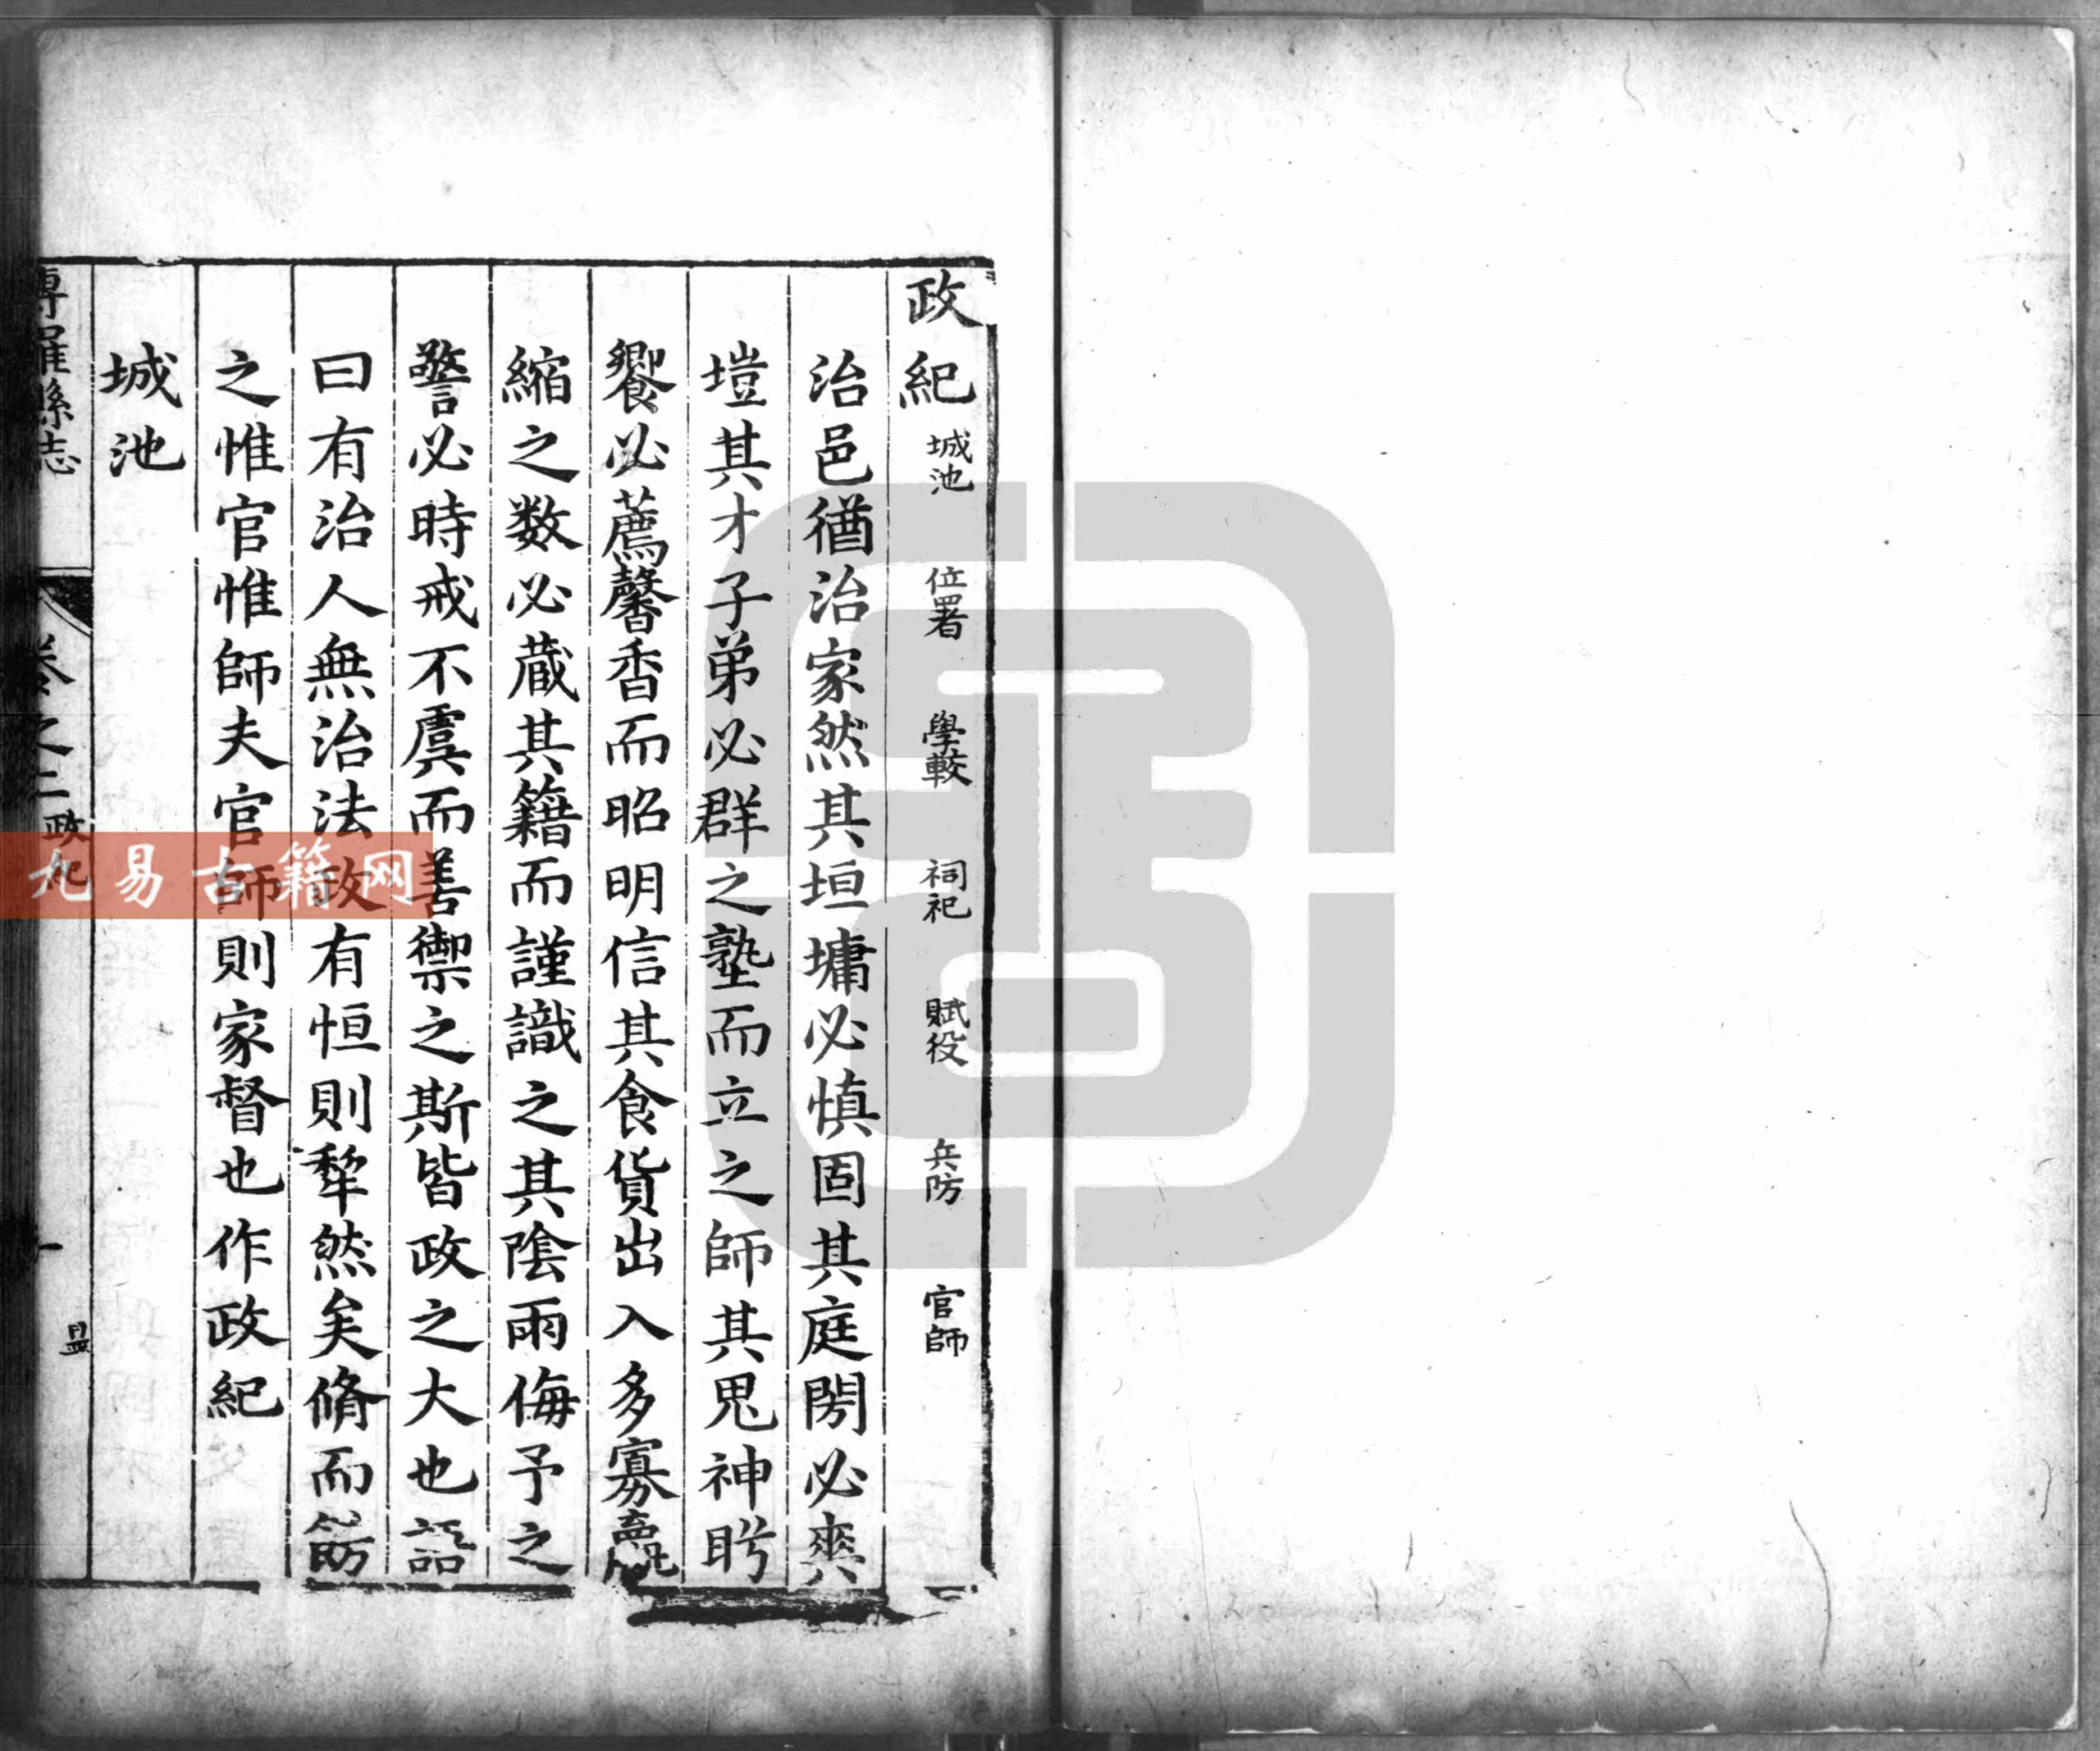 政紀 城池 位署 學較 祠祀 賦役 兵防 官師
治邑猶治家然其垣墉必慎固其庭閍必爽
塏其才子弟必群之塾而立之師其鬼神肸
饗必薦馨香而昭明信其食貨出入多寡贏
縮之数必蔵其籍而謹識之其陰雨侮予之
警必時戒不虞而善禦之斯皆政之大也語
曰有治人無治法政有恒則犂然矣脩而飭
之惟官惟師夫官師則家督也作政紀
城池
博羅縣志 卷之二 政紀 一 昷
九易古籍网